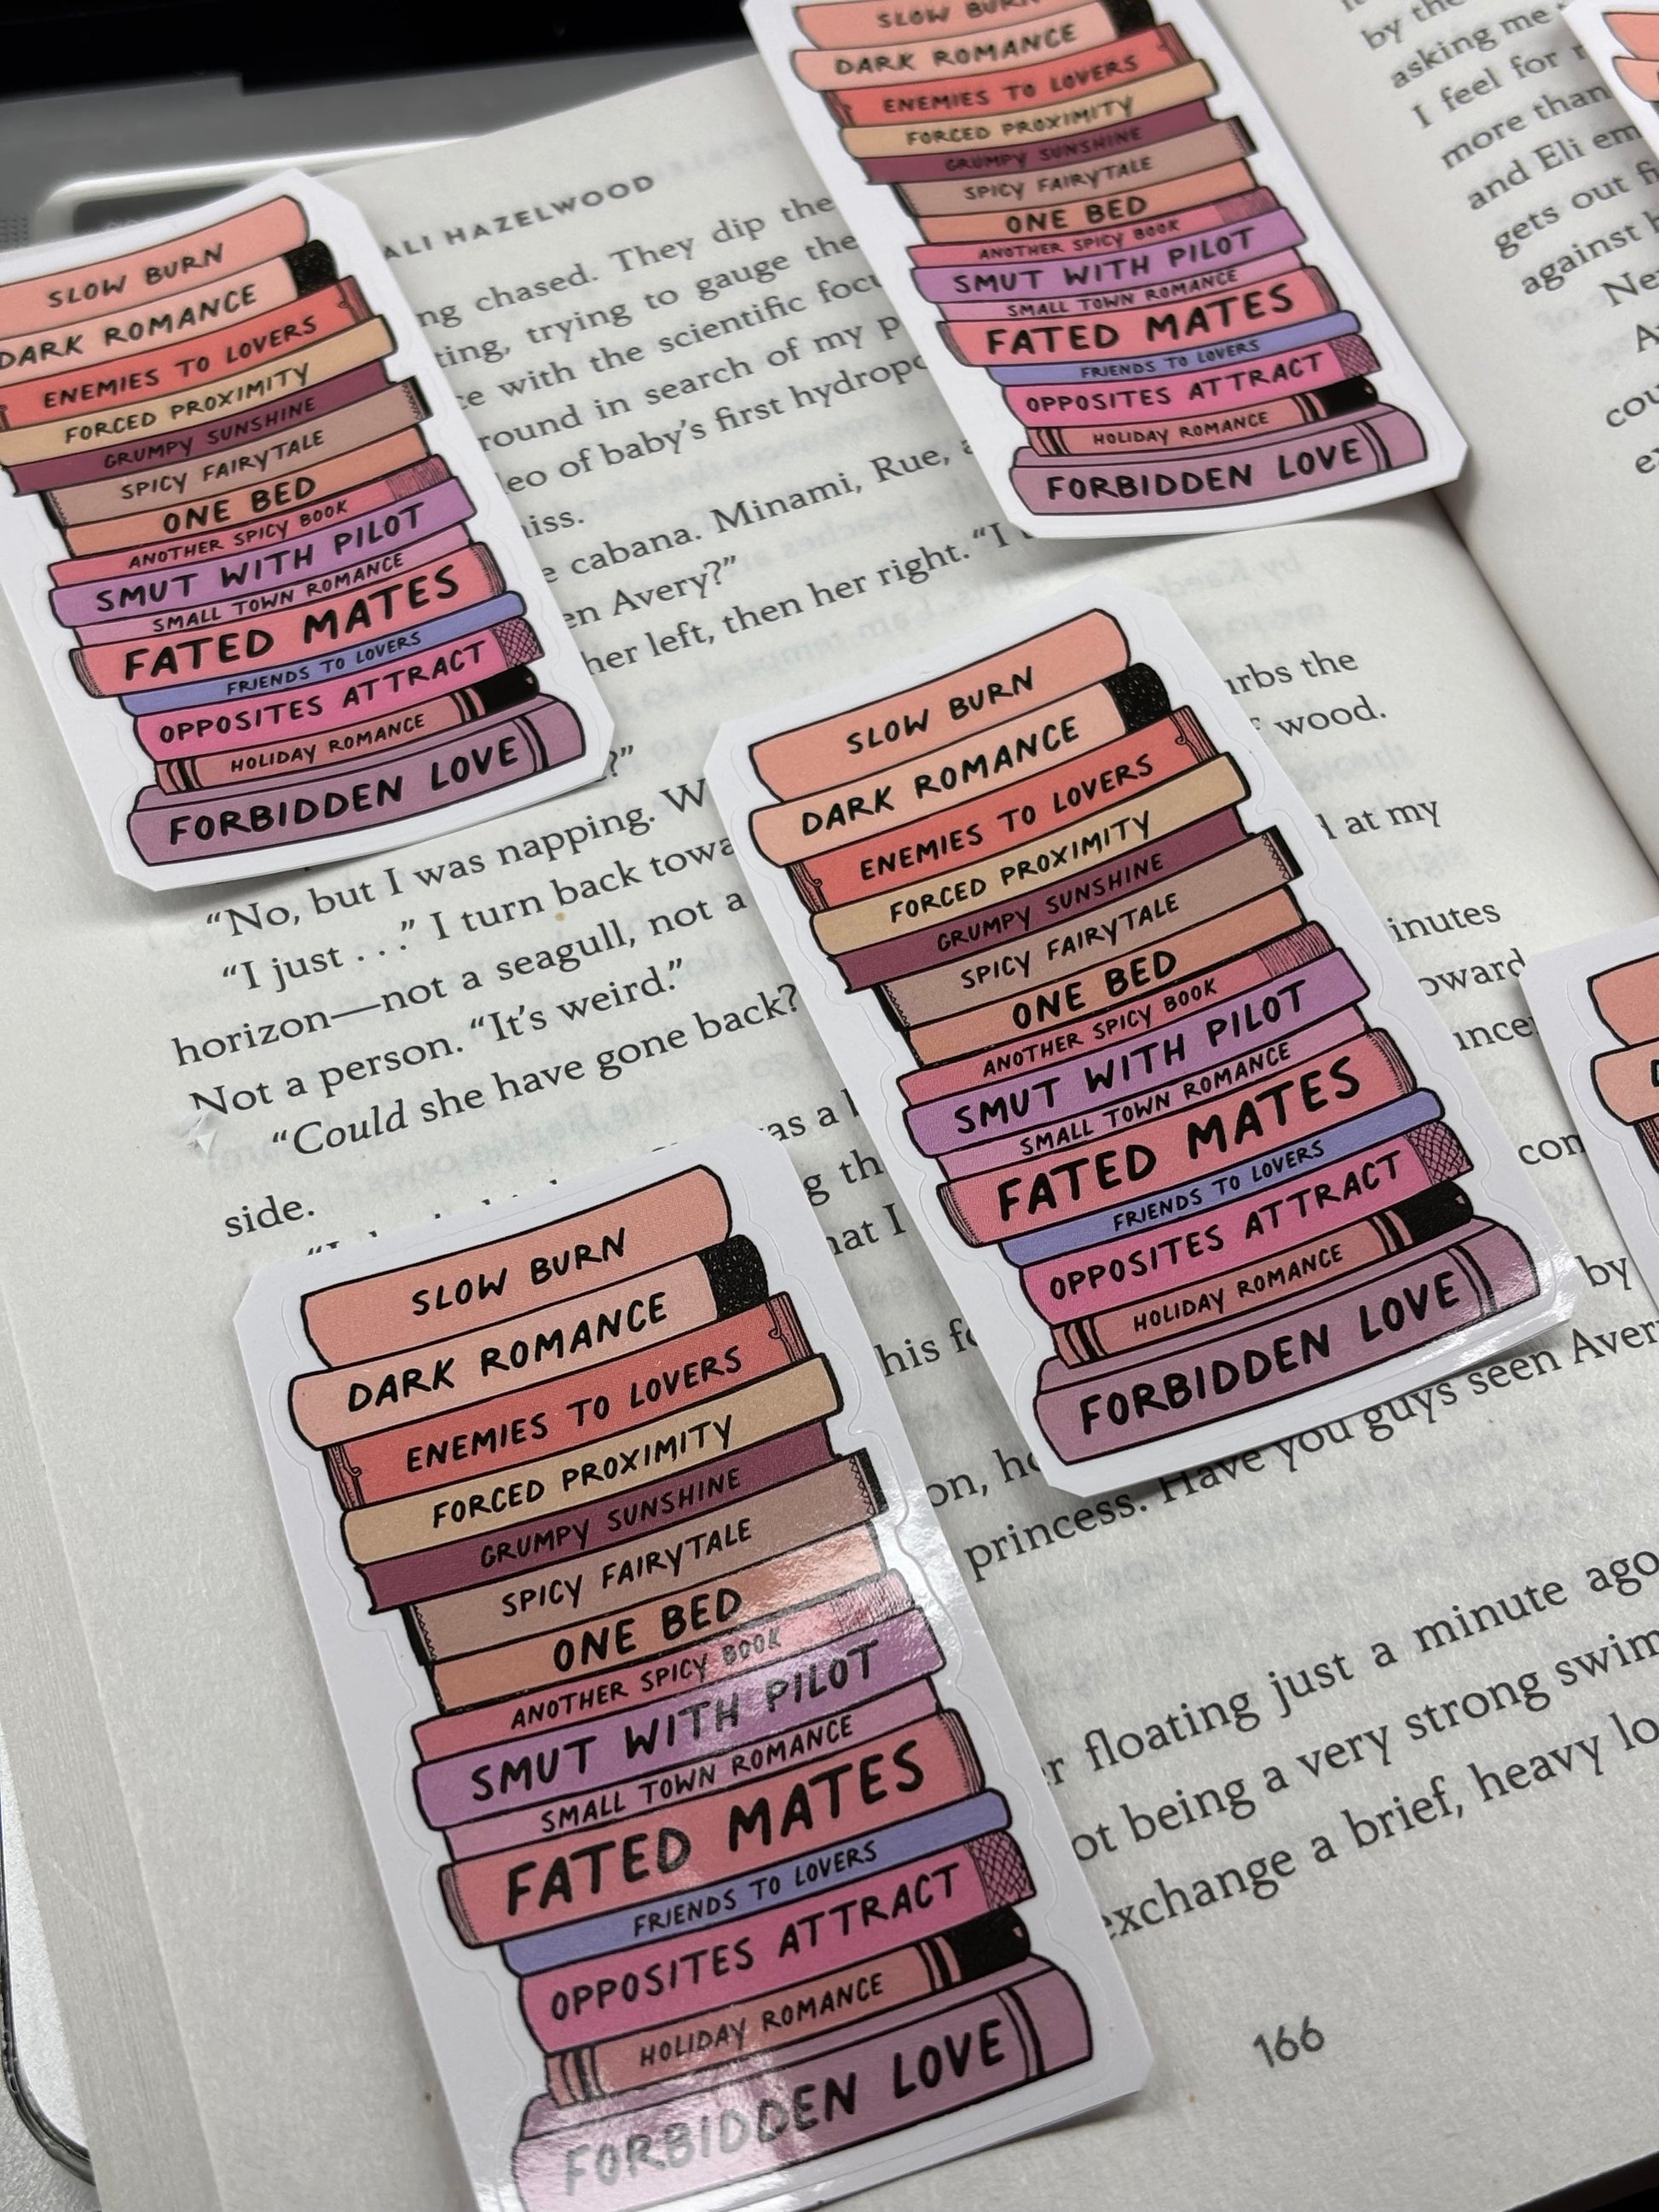 SLOW BURN
DARK ROMANCE
ENEMIES TO LOVERS
FORCED PROXIMITY
GRUMPY SUNSHINE
SPICY FAIRYTALE
ONE BED
ANOTHER SPICY BOOK
SMUT WITH PILOT
SMALL TOWN ROMANCE
FATED MATES
FRIENDS TO LOVERS
OPPOSITES ATTRACT
HOLIDAY ROMANCE
FORBIDDEN LOVE
SLOW BURN
DARK ROMANCE
ENEMIES TO LOVERS
FORCED PROXIMITY
GRUMPY SUNSHINE
SPICY FAIRYTALE
ONE BED
ANOTHER SPICY BOOK
SMUT WITH PILOT
SMALL TOWN ROMANCE
FATED MATES
FRIENDS TO LOVERS
OPPOSITES ATTRACT
HOLIDAY ROMANCE
FORBIDDEN LOVE
SLOW BURN
DARK ROMANCE
ENEMIES TO LOVERS
FORCED PROXIMITY
GRUMPY SUNSHINE
SPICY FAIRYTALE
ONE BED
ANOTHER SPICY BOOK
SMUT WITH PILOT
SMALL TOWN ROMANCE
FATED MATES
FRIENDS TO LOVERS
OPPOSITES ATTRACT
HOLIDAY ROMANCE
FORBIDDEN LOVE
SLOW BURN
DARK ROMANCE
ENEMIES TO LOVERS
FORCED PROXIMITY
GRUMPY SUNSHINE
SPICY FAIRYTALE
ONE BED
ANOTHER SPICY BOOK
SMUT WITH PILOT
SMALL TOWN ROMANCE
FATED MATES
FRIENDS TO LOVERS
OPPOSITES ATTRACT
HOLIDAY ROMANCE
FORBIDDEN LOVE
ALI HAZELWOOD
chased. They dip the
trying to gauge the
with the scientific
in search of my
of baby's first
cabana. Minami, Rue,
Avery?”
her left, then her right. “I
the
wood.
“No, but I was napping.
at my
“I just . . .” I turn back
horizon—not a seagull, not a
Not a person. “It's weird.”
“Could she have gone back?
side.
his
princess. Have you guys seen
floating just a minute ago
being a very strong
exchange a brief, heavy
166
by the
asking me
I feel for
more than
and Eli
gets out
against